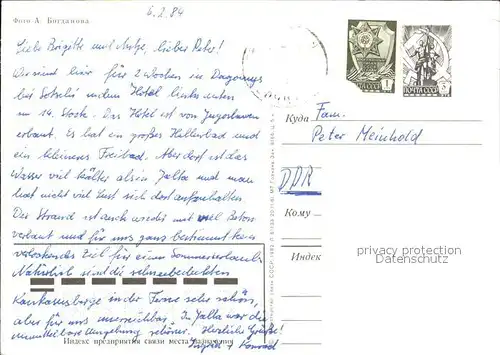 6.2.84
Фото А. Богданова
Liebe Brigitte und Antje, lieber Peter!
Wir sind hier für 2 Wochen in Dagomys
bei Sotschi in dem Hotel links unten
im 14. Stock. Das Hotel ist von Jugoslawen
erbaut. Es hat ein großes Hallenbad und
ein kleineres Freibad. Aber dort ist das
Wasser viel kälter als in Jalta und man
hat nicht viel Lust sich dort aufzuhalten.
Der Strand ist auch wieder mit viel Beton
verbaut und für uns ganz bestimmt kein
verlockendes Ziel für einen Sommerurlaub.
Natürlich sind die schneebedeckten
Kaukasusberge in der Ferne sehr schön,
aber für uns unerreichbar. In Jalta war die
unmittelbare Umgebung schöner. Herzliche Grüße!
+ Konrad
Индекс предприятия связи места назначения
ПОЧТА СССР
ПОЧТА СССР
Куда Fam.
Peter Meinhold
DDR
Кому
Индекс
privacy protection
Datenschutz